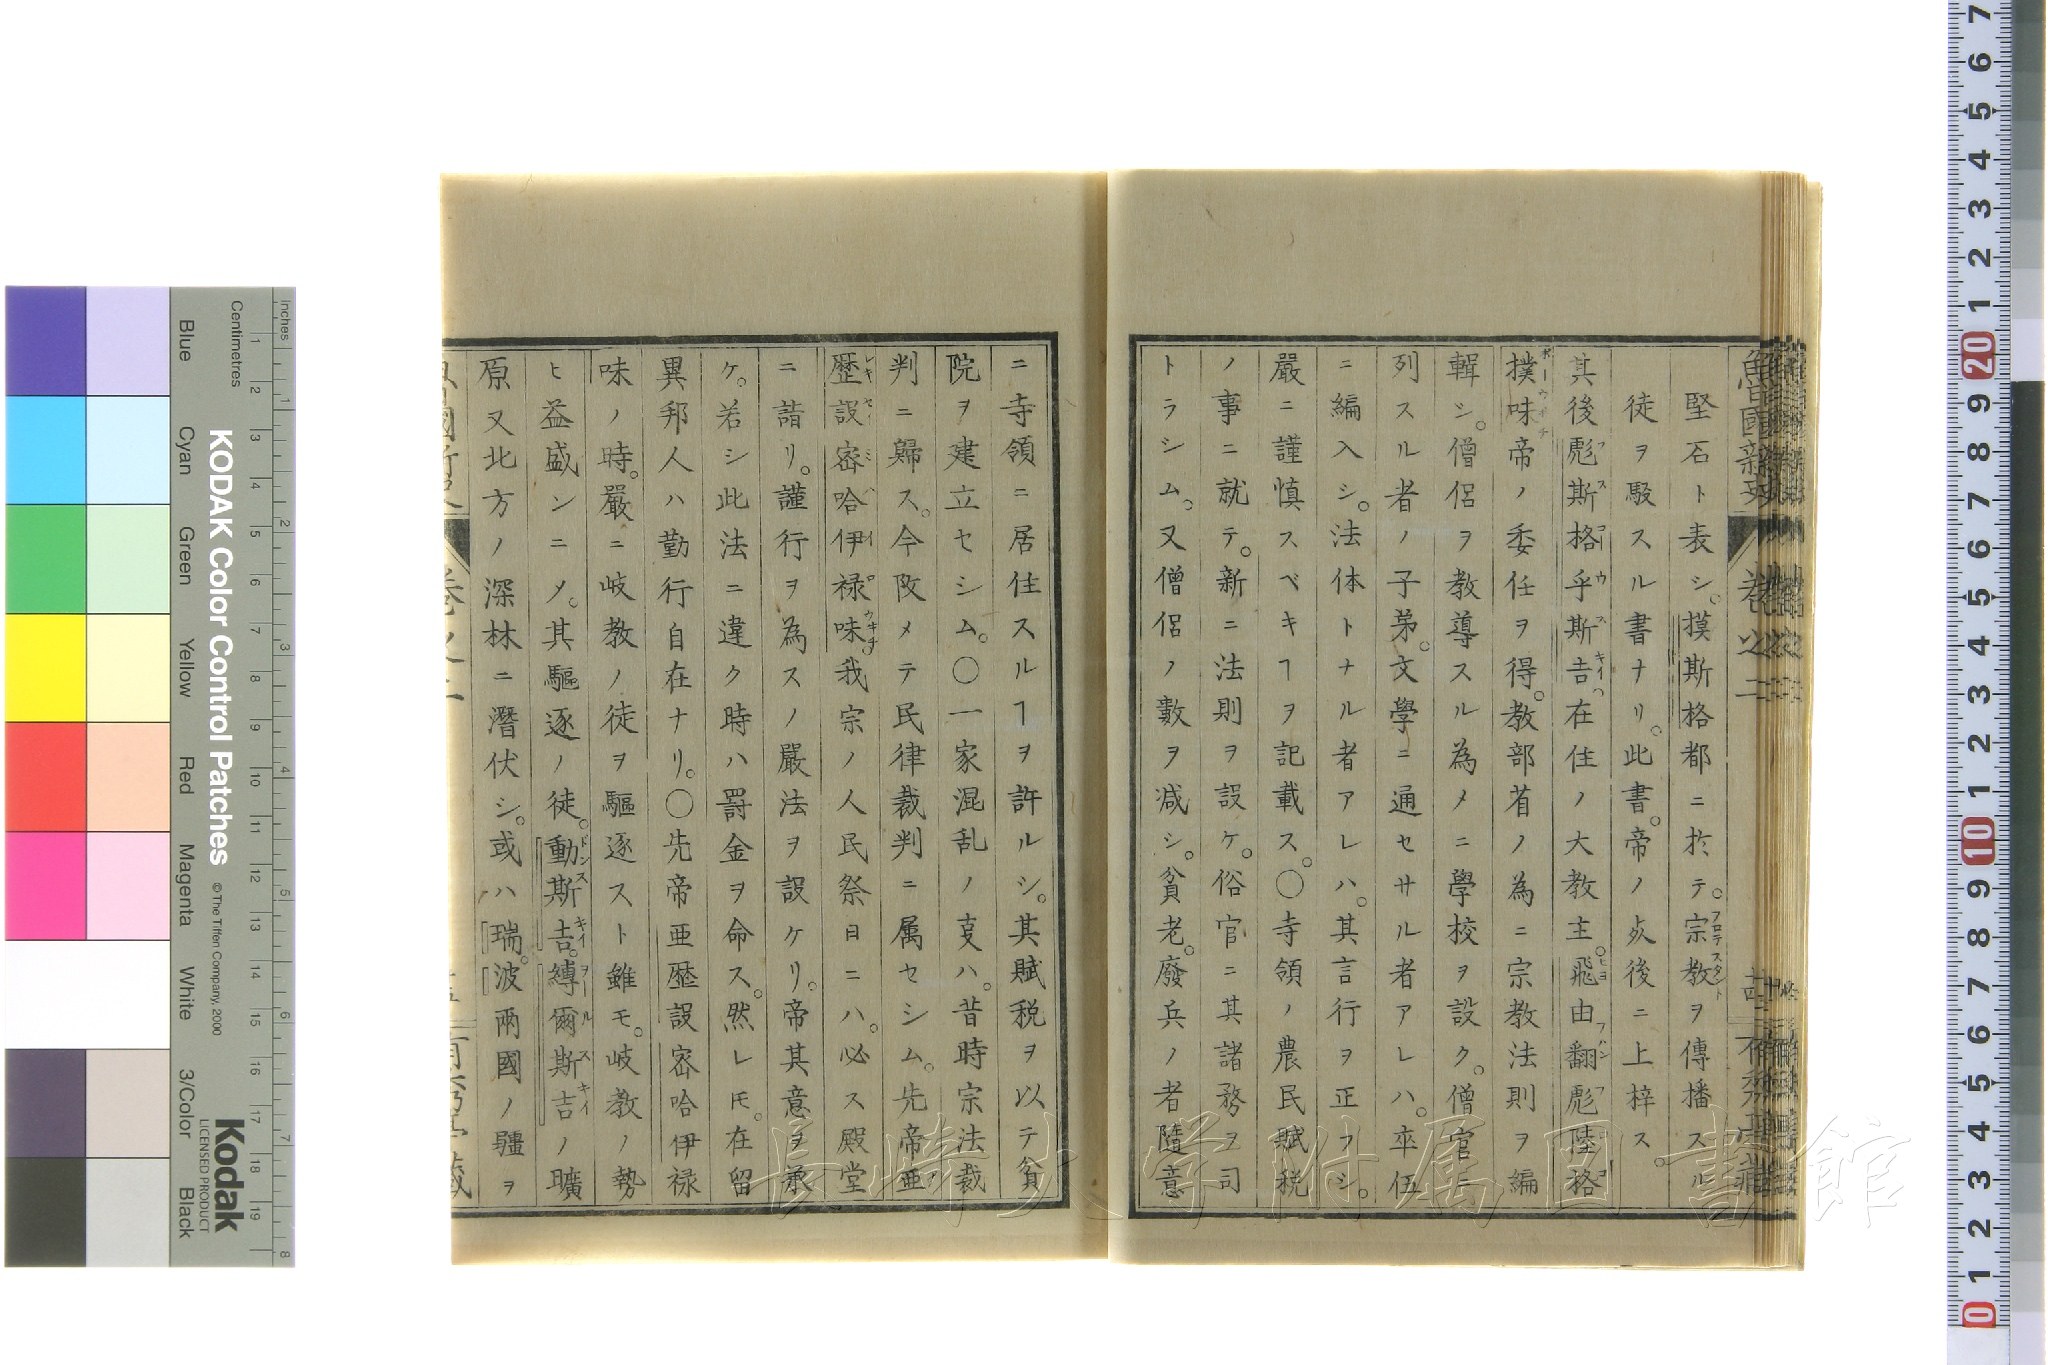 堅石ト表シ。摸斯格都ニ於テ。宗教ヲ傳播スル
プロテスタント
徒ヲ駁スル書ナリ。此書。帝ノ炗後ニ上梓ス。
其後彪斯格乎斯𠮷。在住ノ大教主。飛由翻彪陸格
撲味帝ノ委任ヲ得。教部省ノ為ニ宗教法則ヲ編
輯シ。僧侶ヲ教導スル為メニ學校ヲ設ク。僧官ニ
列スル者ノ子弟。文學ニ通セサル者アレハ。卒伍
ニ編入シ。法体トナル者アレハ。其言行ヲ正フシ。
嚴ニ謹慎スベキヿヲ記載ス。〇寺領ノ農民賦税
ノ事ニ就テ。新ニ法則ヲ設ケ。俗官ニ其諸務ヲ司
トラシム。又僧侶ノ數ヲ減シ。貧老。廢兵ノ者隨意
ニ寺領ニ居住スルヿヲ許ルシ。其賦税ヲ以テ貧
院ヲ建立セシム。〇一家混乱ノ叓ハ。昔時宗法裁
判ニ歸ス。今改メテ民律裁判ニ属セシム。先帝亜
歴設密哈伊禄味我宗ノ人民祭日ニハ。必ス殿堂
レキセーミハイロウ井チ
ニ詣リ。謹行ヲ為スノ嚴法ヲ設ケリ。帝其意ヲ承
ケ。若シ此法ニ違ク時ハ罸金ヲ命ス。然レ𪜈。在留
異邦人ハ勤行自在ナリ。〇先帝亜歴設密哈伊禄
味ノ時。嚴ニ岐教ノ徒ヲ驅逐スト雖モ。岐教ノ勢
ヒ益盛ンニ〆。其驅逐ノ徒。動斯𠮷。縛爾斯𠮷ノ曠
ドンスキイヲールスキイ
原又北方ノ深林ニ潛伏シ。或ハ瑞。波兩國ノ疆ヲ
魯國新史 卷之二